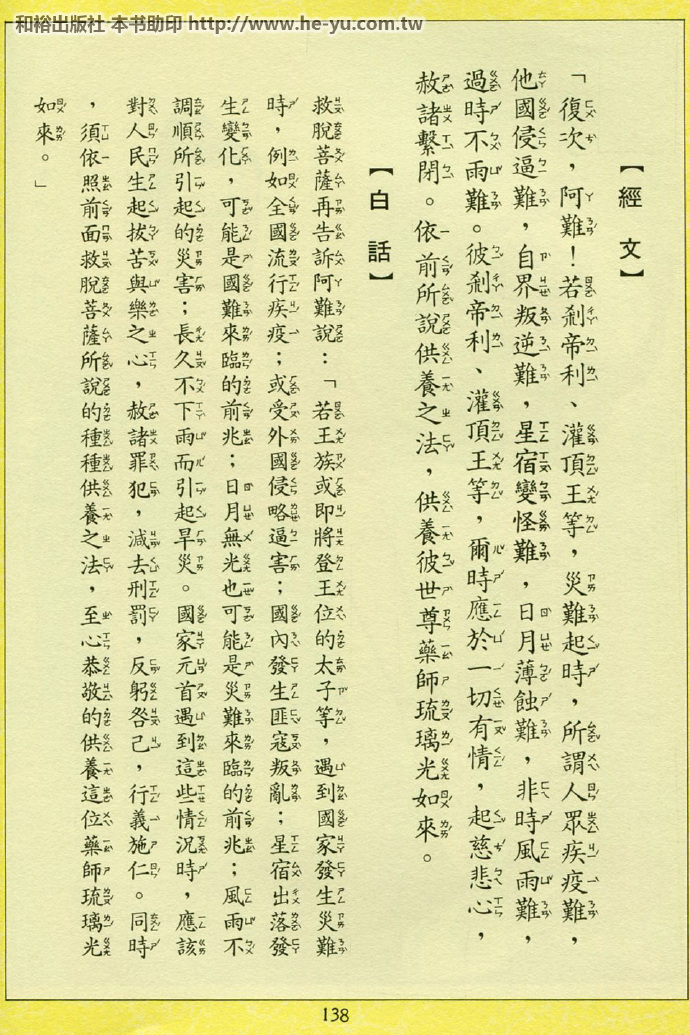 和裕出版社 本书助印 http://www.he-yu.com.tw
【經文】
「復次，阿難！若剎帝利、灌頂王等，災難起時，所謂人眾疾疫難，
他國侵逼難，自界叛逆難，星宿變怪難，日月薄蝕難，非時風雨難，
過時不雨難。彼剎帝利、灌頂王等，爾時應於一切有情，起慈悲心，
赦諸繫閉。依前所說供養之法，供養彼世尊藥師琉璃光如來。
【白話】
救脫菩薩再告訴阿難說：「若王族或即將登王位的太子等，遇到國家發生災難
時，例如全國流行疾疫；或受外國侵略逼害；國內發生匪寇叛亂；星宿出落發
生變化，可能是國難來臨的前兆；日月無光也可能是災難來臨的前兆；風雨不
調順所引起的災害；長久不下雨而引起旱災。國家元首遇到這些情況時，應該
對人民生起拔苦與樂之心，赦諸罪犯，減去刑罰，反躬咎己，行義施仁。同時
，須依照前面救脫菩薩所說的種種供養之法，至心恭敬的供養這位藥師琉璃光
如來。」
138